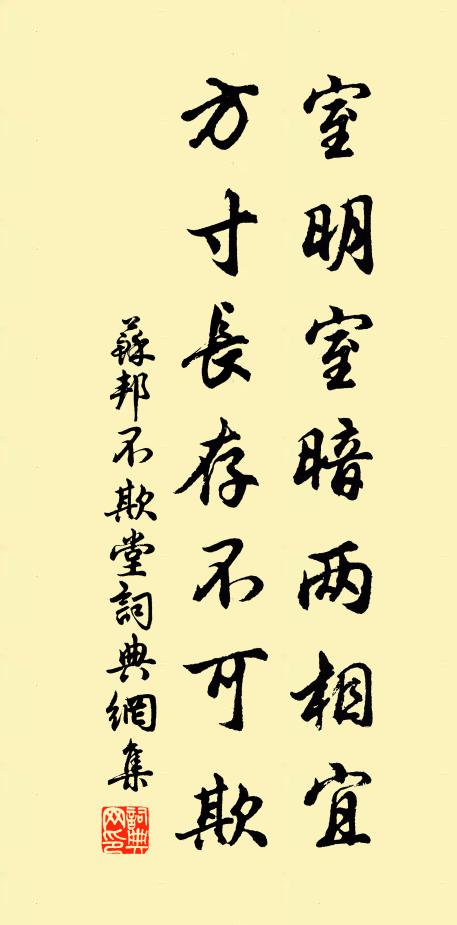 室明室暗两相宜
方寸長存不可欺
蘇邦不欺堂詞典網集
詞典网印